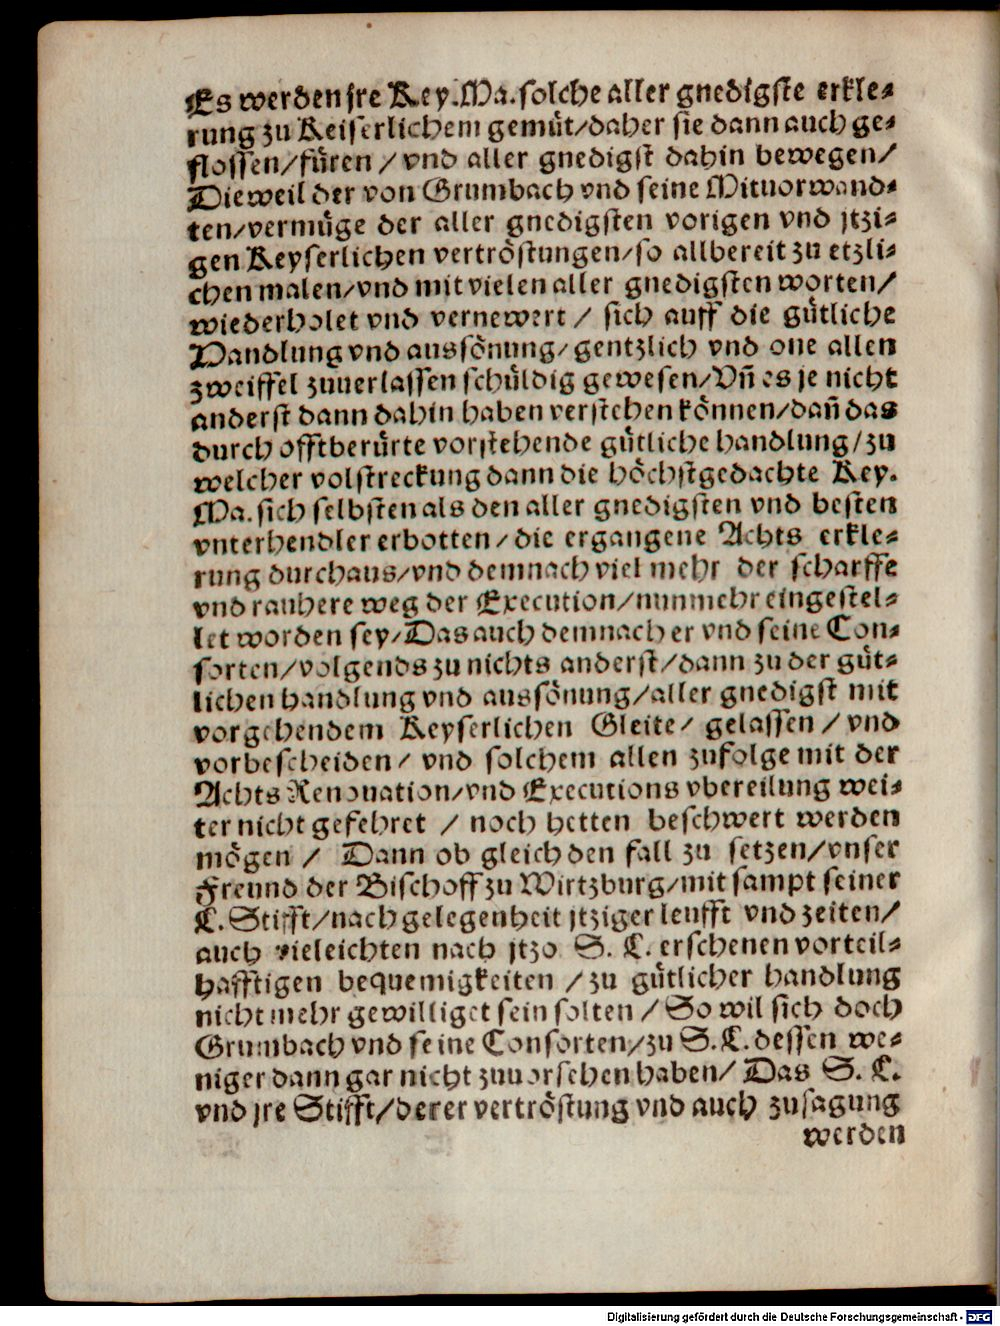 Es werden jre Key. Ma. solche aller gnedigste erkle⸗
rung zu Keiserlichem gemüt/daher sie dann auch ge⸗
flossen/füren / vnd aller gnedigst dahin bewegen/
Dieweil der von Grumbach vnd seine Mituorwand⸗
ten/vermüge der aller gnedigsten vorigen vnd jtzi⸗
gen Keyserlichen vertröstungen/so allbereit zu etzli⸗
chen malen/vnd mit vielen aller gnedigsten worten/
wiederholet vnd vernewert / sich auff die gütliche
Handlung vnd aussönung/gentzlich vnd one allen
zweiffel zuuerlassen schüldig gewesen/Vñ es je nicht
anderst dann dahin haben verstehen können/dañ das
durch offtberürte vorstehende gütliche handlung/zu
welcher volstreckung dann die höchstgedachte Key.
Ma. sich selbsten als den aller gnedigsten vnd besten
vnterhendler erbotten/die ergangene Achts erkle⸗
rung durchaus/vnd demnach viel mehr der scharffe
vnd rauhere weg der Execution/nunmehr eingestel⸗
let worden sey/Das auch demnach er vnd seine Con⸗
sorten/volgends zu nichts anderst/dann zu der güt⸗
lichen handlung vnd aussönung/aller gnedigst mit
vorgehendem Keyserlichen Gleite/ gelassen / vnd
vorbescheiden/ vnd solchem allen zufolge mit der
Achts Renouation/vnd Executions vbereilung wei⸗
ter nicht gefehret / noch hetten beschwert werden
mögen / Dann ob gleich den fall zu setzen/vnser
Freund der Bischoff zu Wirtzburg/mit sampt seiner
L. Stifft/nach gelegenheit jtziger leufft vnd zeiten/
auch vieleichten nach jtzo S. L. erschenen vorteil⸗
hafftigen bequemigkeiten / zu gütlicher handlung
nicht mehr gewilliget sein solten / So wil sich doch
Grumbach vnd seine Consorten/zu S. L. dessen we⸗
niger dann gar nicht zuuorsehen haben/ Das S. L.
vnd jre Stifft/derer vertröstung vnd auch zusagung
werden
Digitalisierung gefördert durch die Deutsche Forschungsgemeinschaft - DFG